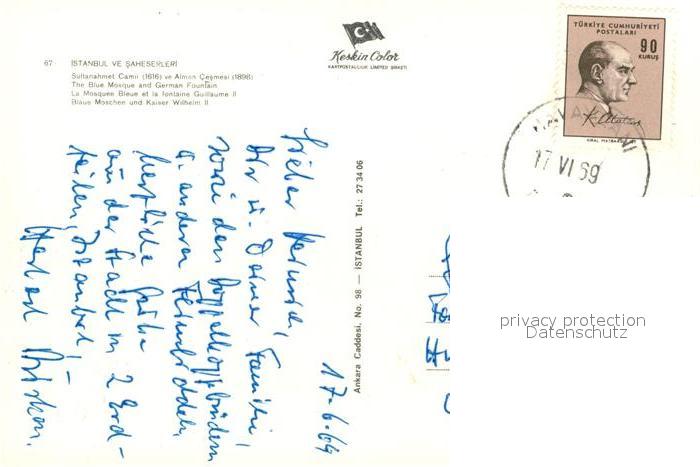 67 İSTANBUL VE ŞAHESERLERİ
Sultanahmet Camii (1616) ve Alman Çeşmesi (1898)
The Blue Mosque and German Fountain
La Mosquée Bleue et la fontaine Guillaume II
Blaue Moschen und Kaiser Wilhelm II
Keskin Color
KARTPOSTALCILIK LIMITED ŞİRKETİ
TÜRKİYE CUMHURİYETİ
POSTALARI
90
KURUŞ
K. Atatürk
17 VI 69
Ankara Caddesi, No. 98 — İSTANBUL Tel.: 27 34 06
17.6.69
Lieber
Dir u. Deiner Familie,
sowie den
u. anderen
herzliche Grüße
aus der Stadt in 2 Erd-
teilen, Istanbul!
privacy protection
Datenschutz